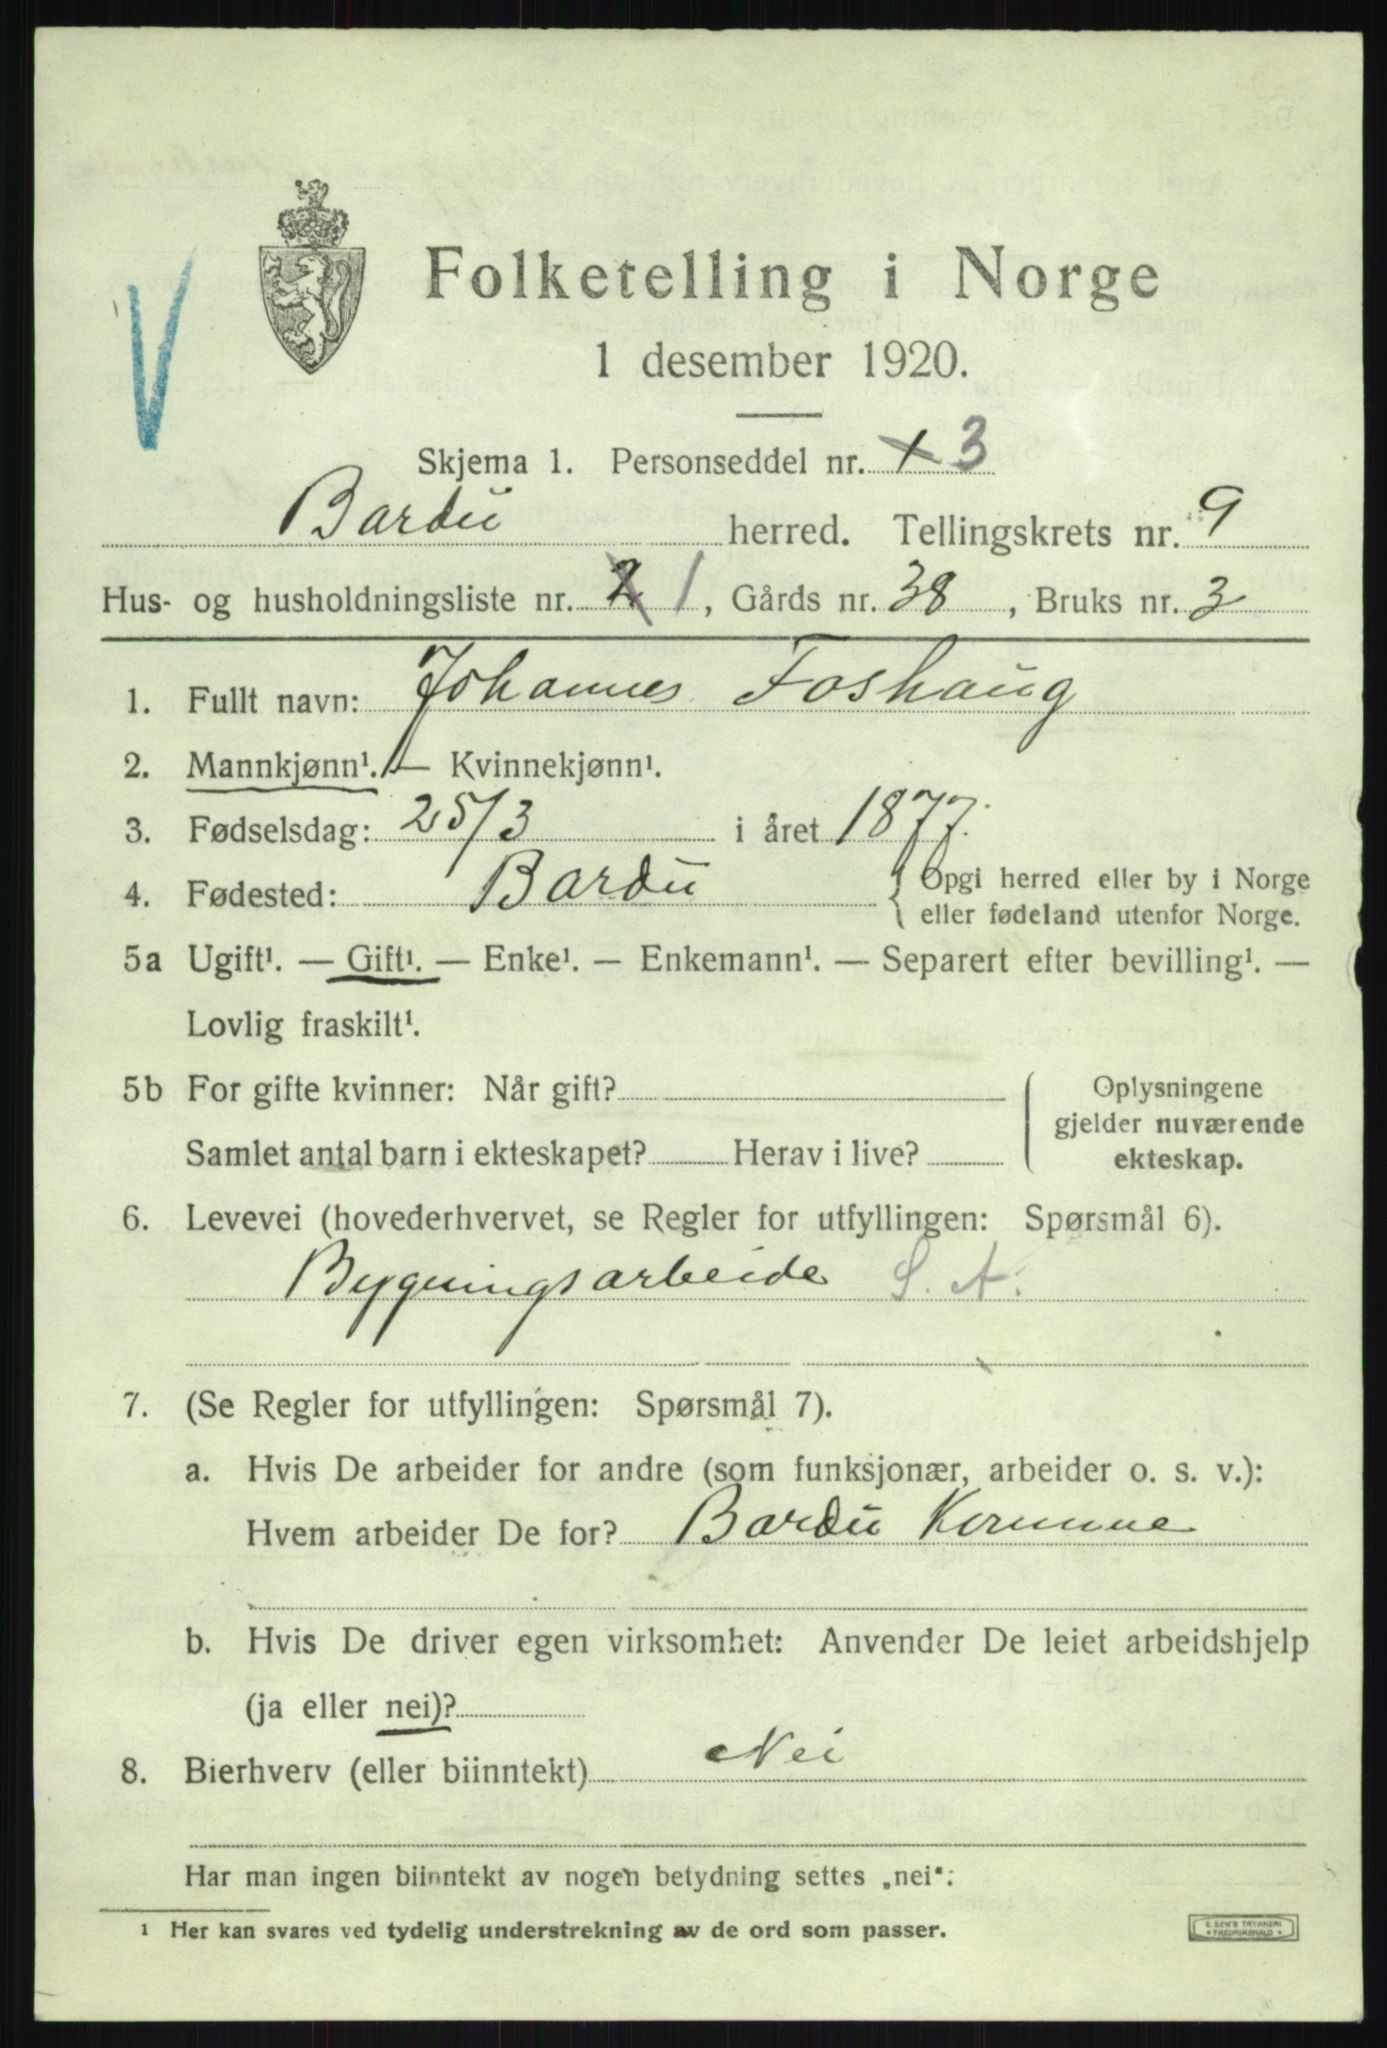 Folketelling i Norge
1 desember 1920.
Skjema 1. Personseddel nr. 1 3
Bardu herred. Tellingskrets nr. 9
Hus- og husholdningsliste nr. 2 1, Gårds nr. 38, Bruks nr. 3
1. Fullt navn: Johannes Foshaug
2. Mannkjønn¹. — Kvinnekjønn¹.
3. Fødselsdag: 25/3 i året 1877.
4. Fødested: Bardu { Opgi herred eller by i Norge
eller fødeland utenfor Norge.
5a Ugift¹. — Gift¹. — Enke¹. — Enkemann¹. — Separert efter bevilling¹. —
Lovlig fraskilt¹.
5b For gifte kvinner: Når gift?
Samlet antal barn i ekteskapet? Herav i live?
Oplysningene
gjelder nuværende
ekteskap.
6. Levevei (hovederhvervet, se Regler for utfyllingen: Spørsmål 6).
Bygningsarbeide S. A.
7. (Se Regler for utfyllingen: Spørsmål 7).
a. Hvis De arbeider for andre (som funksjonær, arbeider o. s. v.):
Hvem arbeider De for? Bardu Komune
b. Hvis De driver egen virksomhet: Anvender De leiet arbeidshjelp
(ja eller nei)?
8. Bierhverv (eller biinntekt) Nei
Har man ingen biinntekt av nogen betydning settes „nei“:
¹ Her kan svares ved tydelig understrekning av de ord som passer.
E. SEM'S TRYKKERI
FREDRIKSHALD